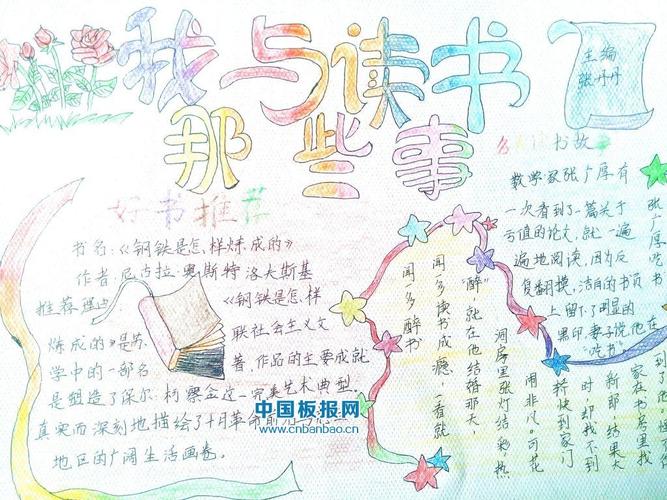 我与读书
那些事
主编
张丹丹
好书推荐
书名:《钢铁是怎样炼成的》
作者:尼古拉·奥斯特洛夫斯基
推荐理由
《钢铁是怎样
炼成的》是苏
联社会主义文
学中的一部名
著,作品的主要成就
是塑造了保尔·柯察金这一完美艺术典型,
真实而深刻地描绘了十月革命前后
地区的广阔生活画卷。
名人读书故事
张广厚吃书
数学家张广厚有
一次看到了一篇关于
亏值的论文,就一遍
遍地阅读,因为反
复翻摸,洁白的书页
上留下了明显的
黑印,妻子说他在
“吃书”
闻一多醉书
闻一多读书成瘾,一看就
“醉”,就在他结婚那天,
洞房里张灯结彩,热
闹非凡。可花
轿快到家门
时,却找不到
新郎,结果大
家在书房里找
中国板报网
www.cnbanbao.cn